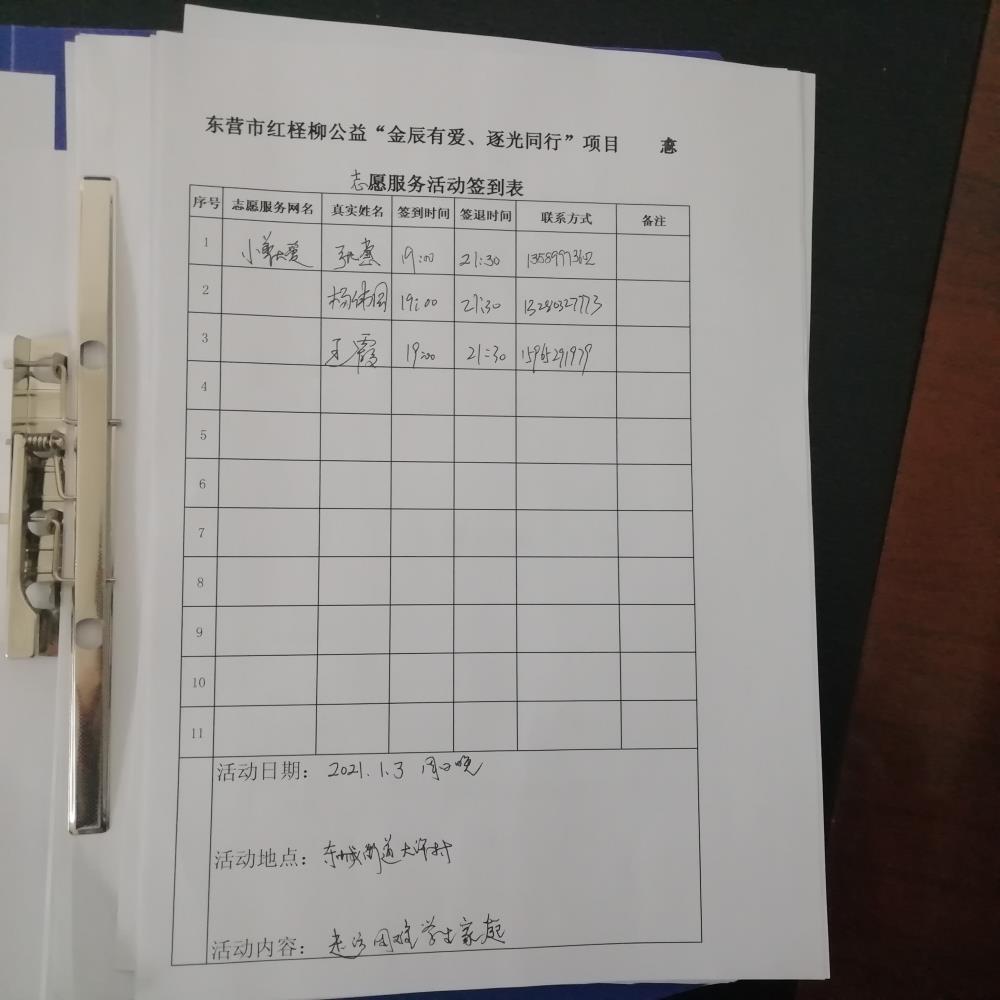 东营市红柽柳公益“金辰有爱、逐光同行”项目 志
志愿服务活动签到表
序号 志愿服务网名 真实姓名 签到时间 签退时间 联系方式 备注
1 小草大爱 19:00 21:30
2 杨伟国 19:00 21:30 13280327773
3 王霞 19:00 21:30 15965291979
4
5
6
7
8
9
10
11
活动日期： 2021.1.3 周日晚
活动地点： 东城街道大许村
活动内容： 走访困难学生家庭